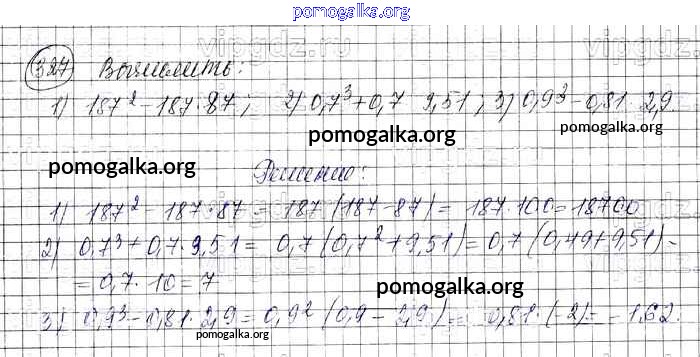 pomogalka.org
327 Вычислить:
1) 187² - 187·87; 2) 0,7³ + 0,7 9,51; 3) 0,9³ - 0,81 2,9
pomogalka.org
pomogalka.org
pomogalka.org
Решение:
1) 187² - 187·87 = 187 (187 - 87) = 187·100 = 18700
2) 0,7³ + 0,7·9,51 = 0,7 (0,7² + 9,51) = 0,7 (0,49 + 9,51) =
= 0,7 · 10 = 7
pomogalka.org
3) 0,9³ - 0,81 2,9 = 0,9² (0,9 - 2,9) = 0,81·(-2) = -1,62.
pomogalka.org